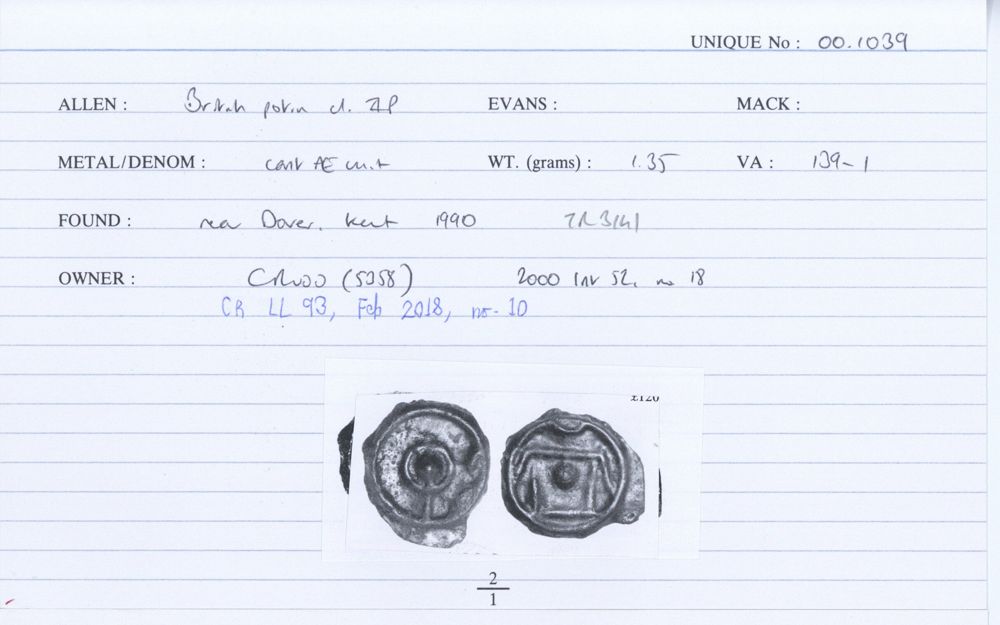 UNIQUE No : 00.1039
ALLEN : British potin cl. IIP EVANS : MACK :
METAL/DENOM : cast AE unit WT. (grams) : 1.35 VA : 139-1
FOUND : near Dover, Kent 1990 TR3141
OWNER : CR (5358) 2000 Inv 52, no 18
CR LL 93, Feb 2018, no. 10
£120
2
1